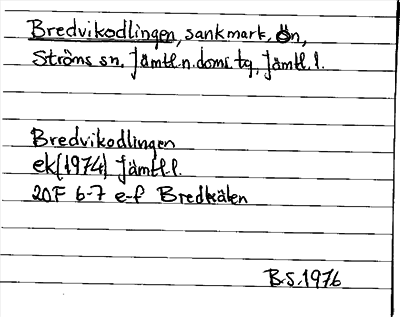 Bredvikodlingen, sankmark, Ön,
Ströms sn. Jämtl. n. doms. tg, Jämtl. l.
Bredvikodlingen
ek (1974) Jämtl. l.
20F 6-7 e-f Bredkälen
B.S. 1976